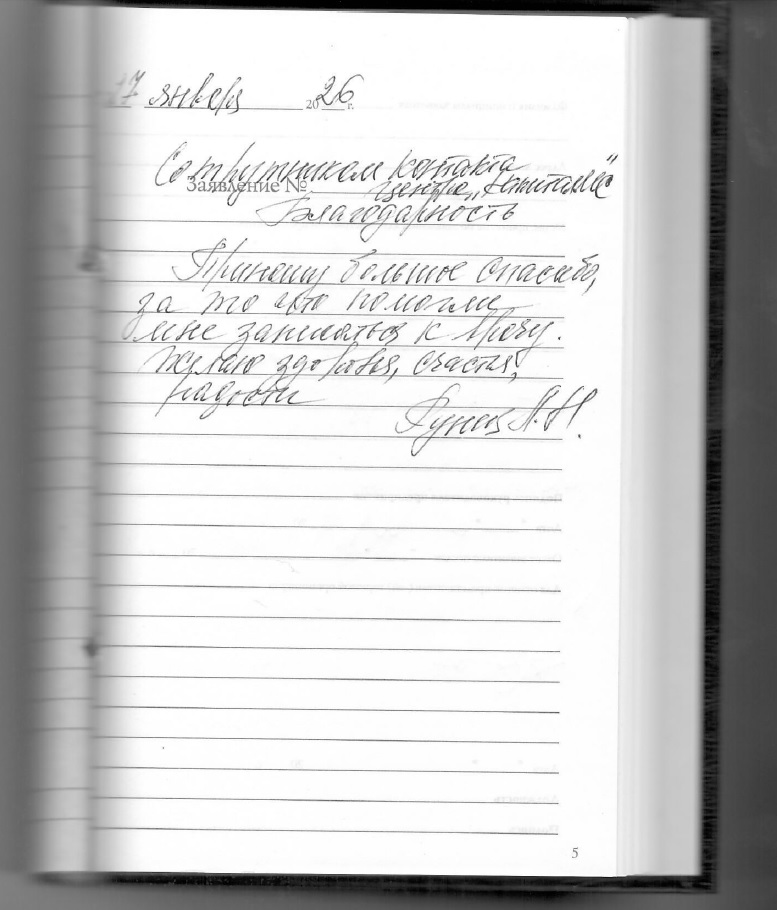 17 января 2026 г.
Сотрутникам контакта
Заявление № центра
Благодарность
Приношу большое спасибо,
за то что помогли
мне записаться к врачу.
Желаю здоровья, счастья,
радости
Л.Н.
5